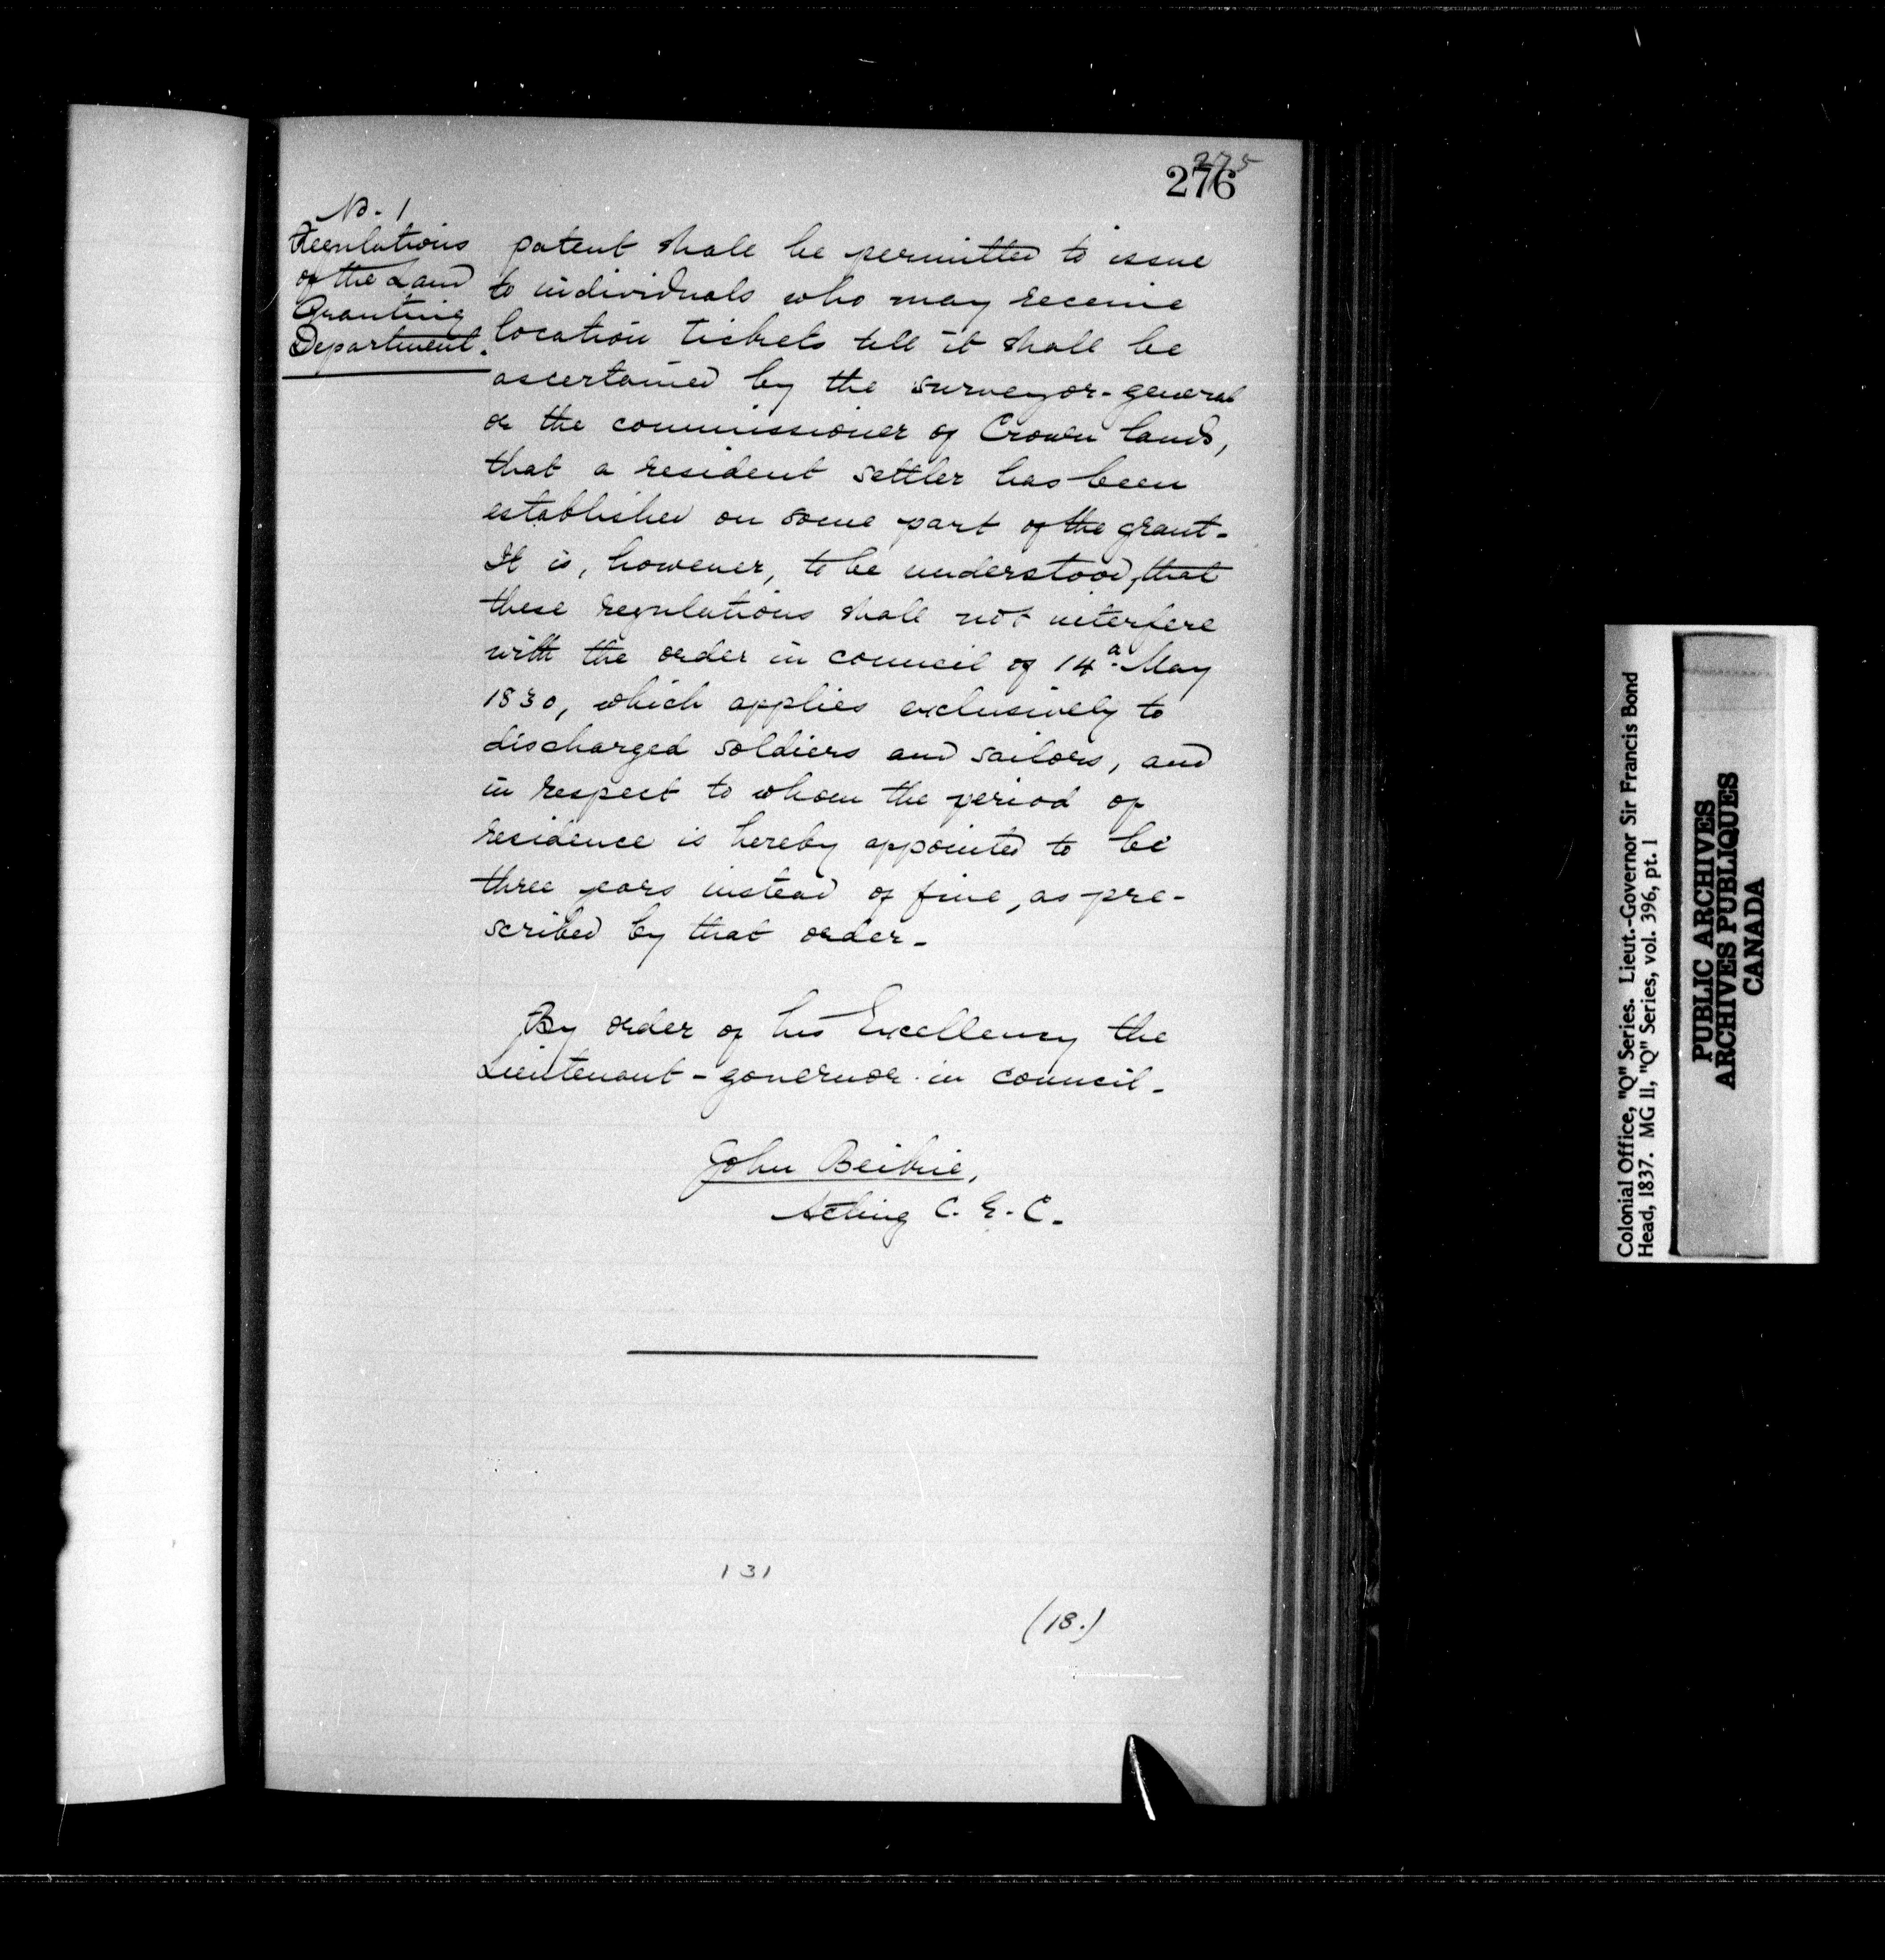 275
276
No. 1
Regulations
of the Land
Granting
Department.
patent shall be permitted to issue
to individuals who may receive
location tickets till it shall be
ascertained by the surveyor-general
or the commissioner of Crown lands,
that a resident settler has been
established on some part of the grant.
It is, however, to be understood, that
these regulations shall not interfere
with the order in council of 14th May
1830, which applies exclusively to
discharged soldiers and sailors, and
in respect to whom the period of
residence is hereby appointed to be
three years instead of five, as pre-
scribed by that order.
By order of his Excellency the
Lieutenant-governor in council.
John Beikie,
Acting C. E. C.
131
(18.)
Colonial Office, "Q" Series. Lieut.-Governor Sir Francis Bond
Head, 1837. MG 11, "Q" Series, vol. 396, pt. 1
PUBLIC ARCHIVES
ARCHIVES PUBLIQUES
CANADA